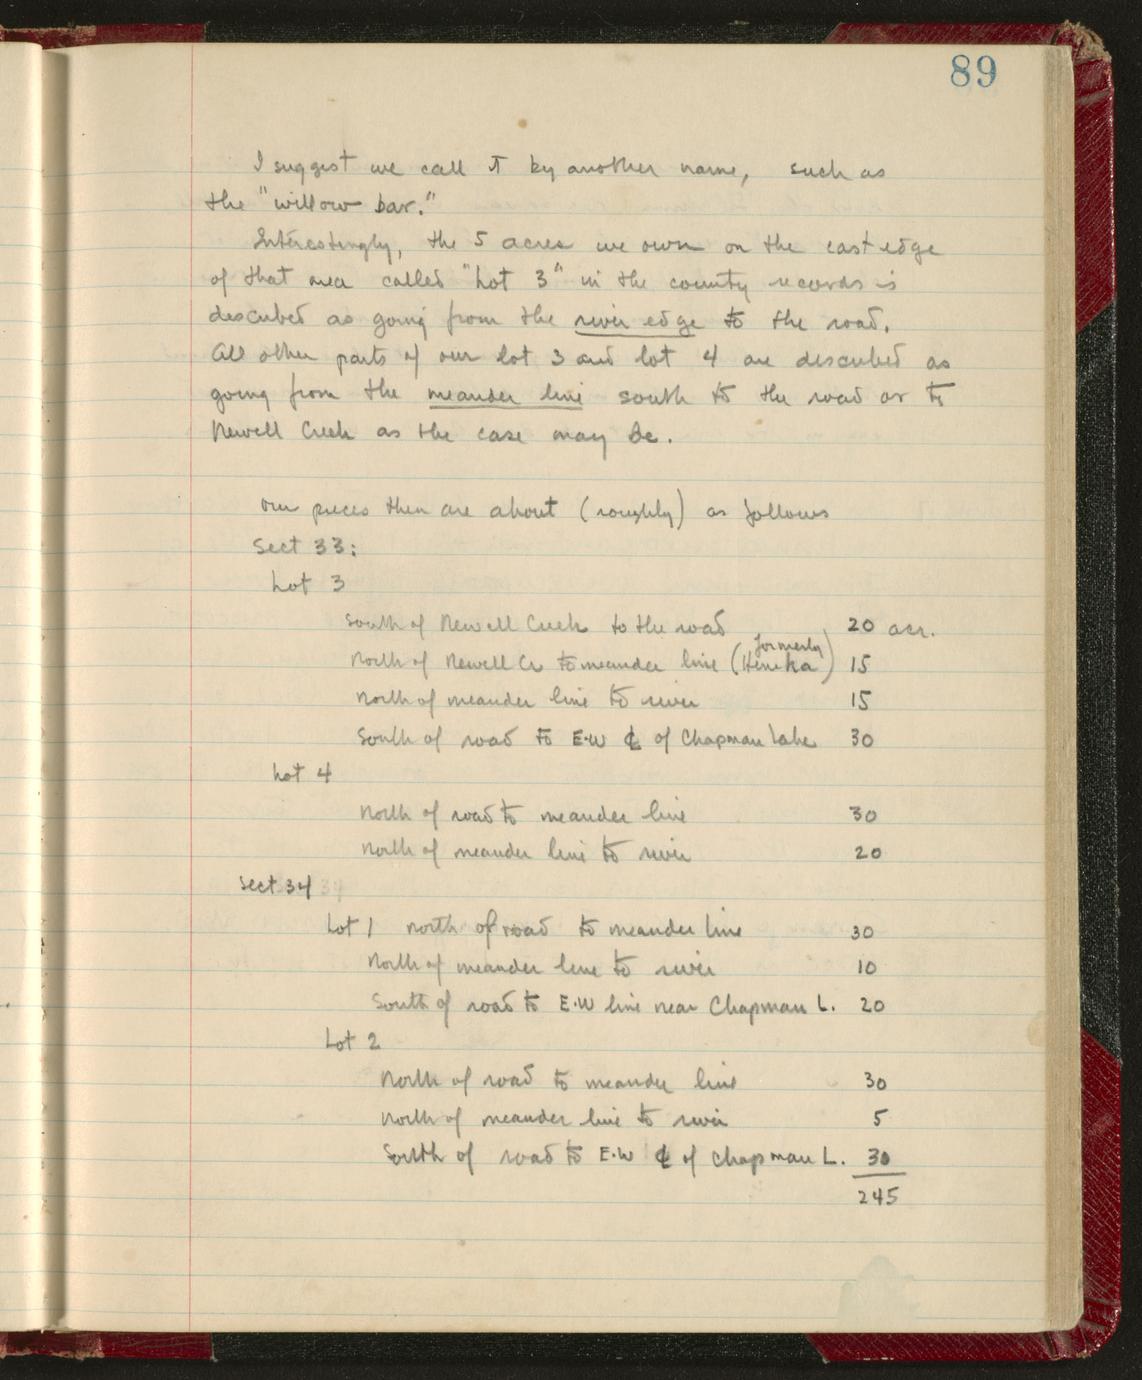 89
I suggest we call it by another name, such as
the "willow bar."
Interestingly, the 5 acres we own on the east edge
of that area called "Lot 3" in the county records is
described as going from the river edge to the road.
All other parts of our lot 3 and lot 4 are described as
going from the meander line south to the road or to
Newell Creek as the case may be.
Our pieces then are about (roughly) as follows
Sect 33:
Lot 3
South of Newell Creek to the road 20 acr.
North of Newell Cr to meander line (formerly Heneka) 15
North of meander line to river 15
South of road to E-W ℄ of Chapman Lake 30
Lot 4
North of road to meander line 30
North of meander line to river 20
Sect 34
Lot 1 north of road to meander line 30
North of meander line to river 10
South of road to E-W line near Chapman L. 20
Lot 2
North of road to meander line 30
North of meander line to river 5
South of road to E-W ℄ of Chapman L. 30
245